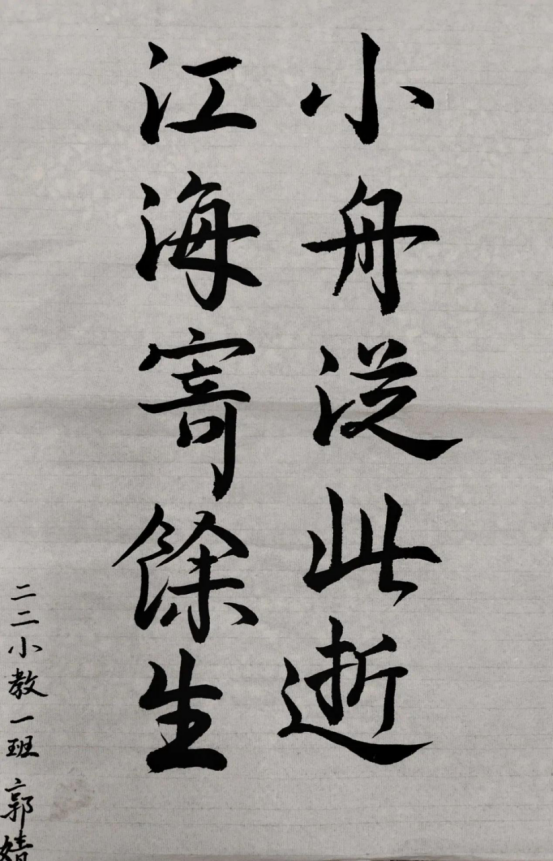 小舟從此逝
江海寄餘生
二二小教一班 郭婧